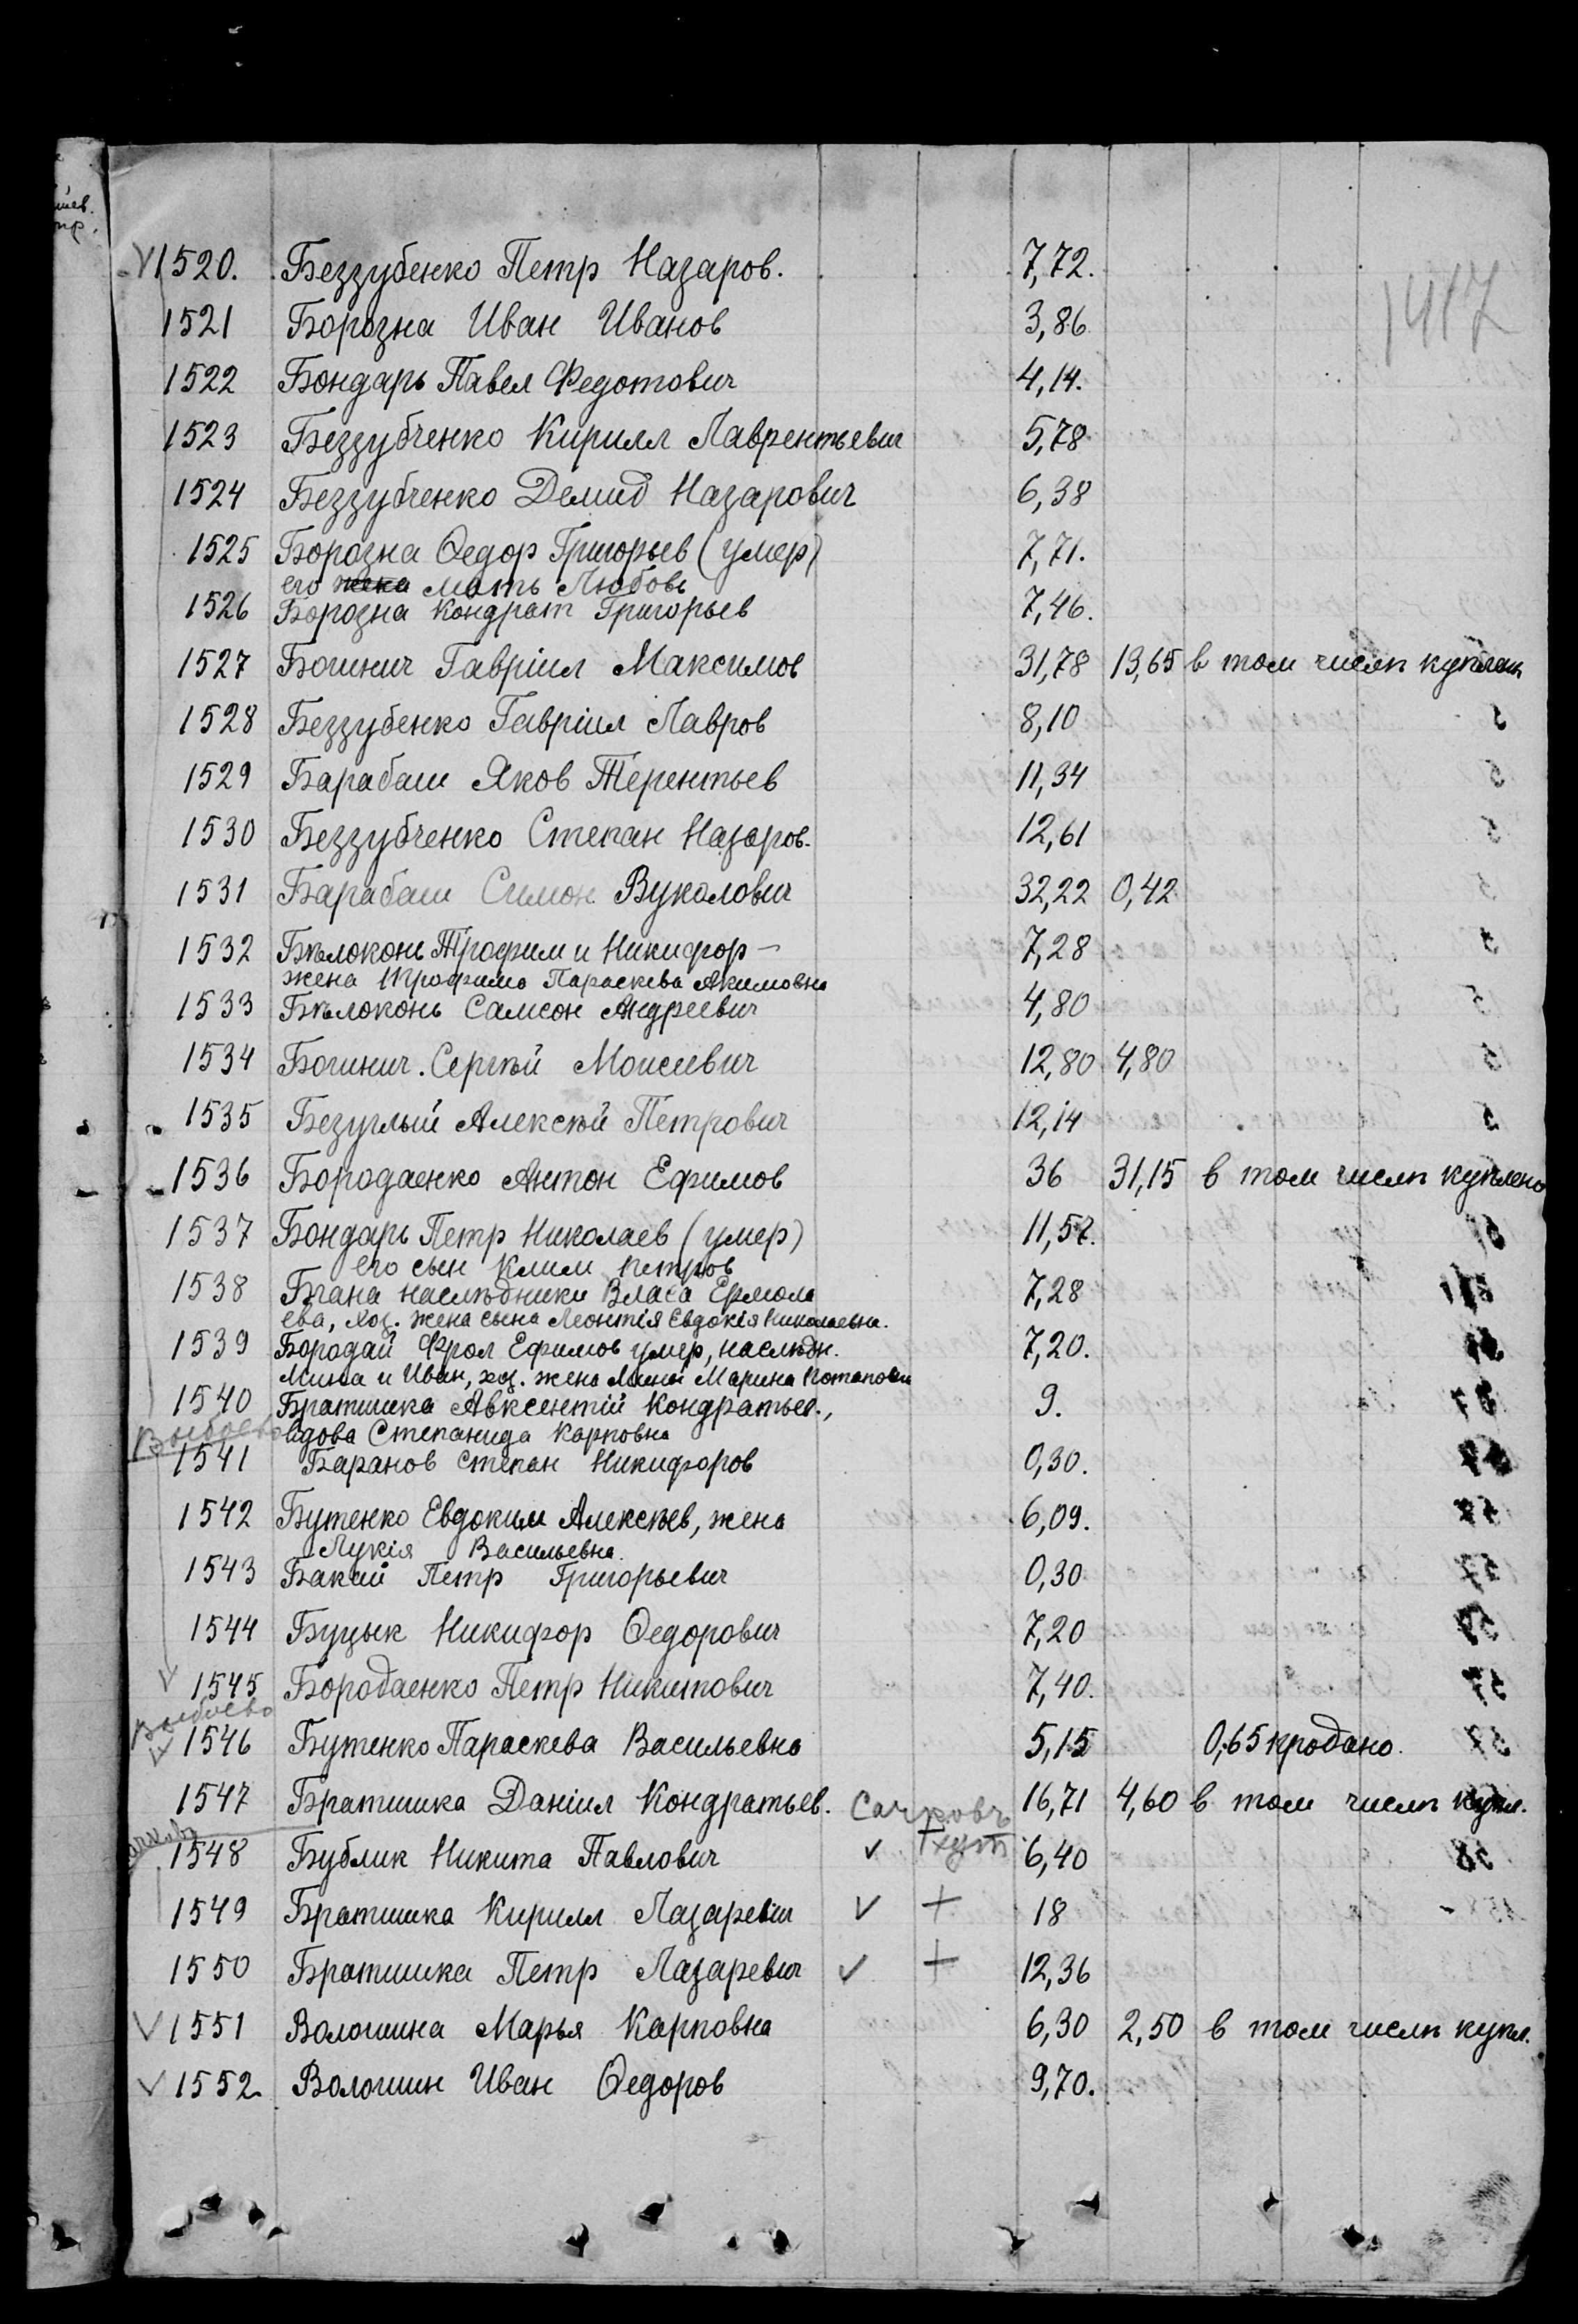 1417
1520. Беззубенко Петр Назаров. 7,72.
1521 Борозна Иван Иванов 3,86
1522 Бондарь Павел Федотович 4,14.
1523 Беззубченко Кирилл Лаврентьевич 5,78
1524 Беззубченко Демид Назарович 6,38
1525 Борозна Ѳедор Григорьев (умер) 7,71.
его жена мать Любовь
1526 Борозна Кондрат Григорьев 7,46.
1527 Богинич Гавріил Максимов 31,78 13,65 в том числѣ куплен
1528 Беззубенко Гавріил Лавров 8,10
1529 Барабаш Яков Терентьев 11,34
1530 Беззубченко Степан Назаров. 12,61
1531 Барабаш Симон Вуколович 32,22 0,42
1532 Бѣлоконь Трофим и Никифор – 7,28
жена Трофима Параскева Акимовна
1533 Бѣлоконь Самсон Андреевич 4,80
1534 Богинич. Сергѣй Моисеевич 12,80 4,80
1535 Безуглый Алексѣй Петрович 12,14
1536 Бородаенко Антон Ефимов 36 31,15 в том числѣ куплено
1537 Бондарь Петр Николаев (умер) 11,57.
его сын Клим Петров
1538 наслѣдники Власа Ермола 7,28
ева, хоз. жена сына Леонтія Евдокія Николаевна.
1539 Бородай Фрол Ефимов умер, наслѣдн. 7,20.
Мина и Иван, хоз. жена Мины Марина Потаповна
1540 Братишка Авксентій Кондратьев., 9.
вдова Степанида Карповна
1541 Баранов Степан Никифоров 0,30.
1542 Бутенко Евдоким Алексѣев, жена 6,09.
Лукія Васильевна.
1543 Бакай Петр Григорьевич 0,30
1544 Буцык Никифор Ѳедорович 7,20
1545 Бородаенко Петр Никитович 7,40.
1546 Бутенко Параскева Васильевна 5,15 0,65 продано.
1547 Братишка Даніил Кондратьев. 16,71 4,60 в том числѣ купл.
1548 Бублик Никита Павлович хут 6,40
1549 Братишка Кирилл Лазаревич + 18
1550 Братишка Петр Лазаревич + 12,36
1551 Волошина Марья Карповна 6,30 2,50 в том числѣ купл.
1552. Волошин Иван Ѳедоров 9,70.